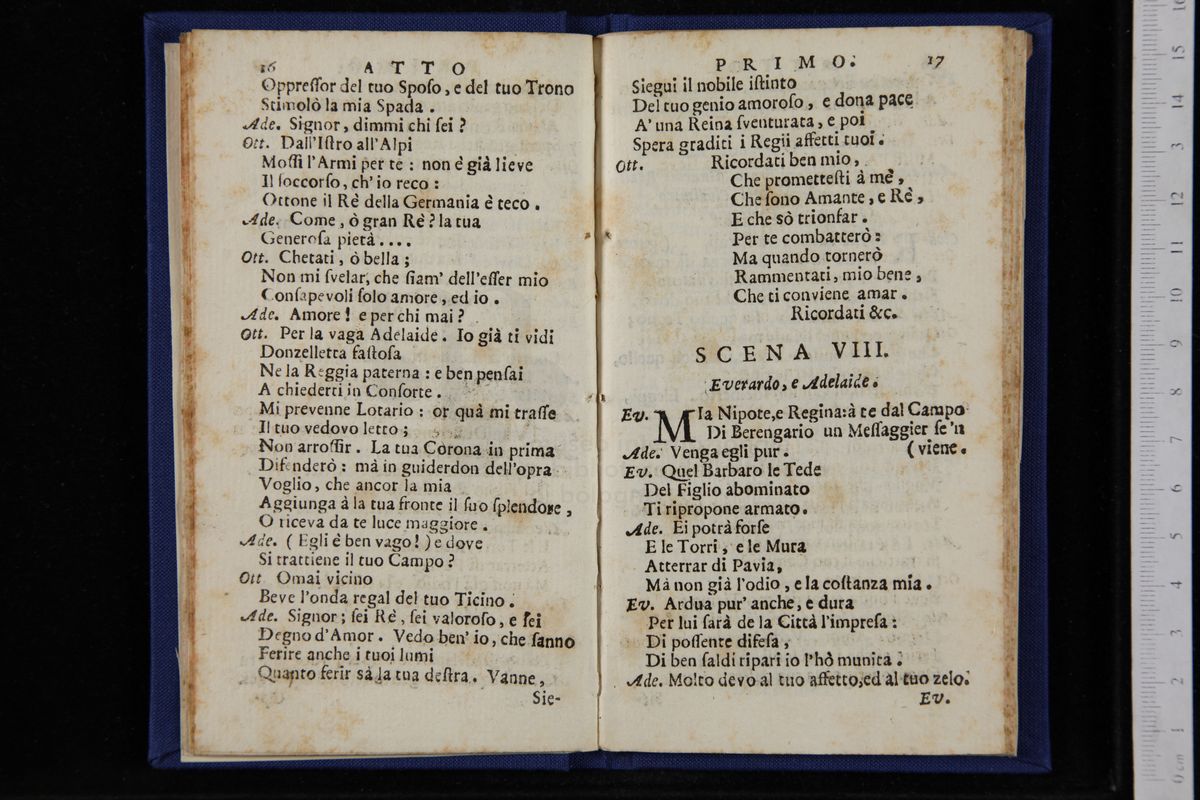 16 ATTO
Oppreſſor del tuo Spoſo, e del tuo Trono
Stimolò la mia Spada.
Ade. Signor, dimmi chi ſei?
Ott. Dall'Iſtro all'Alpi
Moſſi l'Armi per te: non è già lieve
Il ſoccorſo, ch'io reco:
Ottone il Rè della Germania è teco.
Ade. Come, ò gran Rè? la tua
Generoſa pietà....
Ott. Chetati, ò bella;
Non mi ſvelar, che ſiam' dell'eſſer mio
Conſapevoli ſolo amore, ed io.
Ade. Amore! e per chi mai?
Ott. Per la vaga Adelaide. Io già ti vidi
Donzelletta faſtoſa
Ne la Reggia paterna: e ben penſai
A chiederti in Conſorte.
Mi prevenne Lotario: or quà mi traſſe
Il tuo vedovo letto;
Non arroſſir. La tua Corona in prima
Difenderò: mà in guiderdon dell'opra
Voglio, che ancor la mia
Aggiunga à la tua fronte il ſuo ſplendore,
O riceva da te luce maggiore.
Ade. (Egli è ben vago!) e dove
Si trattiene il tuo Campo?
Ott Omai vicino
Beve l'onda regal del tuo Ticino.
Ade. Signor; ſei Rè, ſei valoroſo, e ſei
Degno d'Amor. Vedo ben' io, che ſanno
Ferire anche i tuoi lumi
Quanto ferir sà la tua deſtra. Vanne,
Sie-
PRIMO. 17
Siegui il nobile iſtinto
Del tuo genio amoroſo, e dona pace
A' una Reina ſventurata, e poi
Spera graditi i Regii affetti tuoi.
Ott. Ricordati ben mio,
Che prometteſti à mè,
Che ſono Amante, e Rè,
E che sò trionfar.
Per te combatterò:
Ma quando tornerò
Rammentati, mio bene,
Che ti conviene amar.
Ricordati &c.
SCENA VIII.
Everardo, e Adelaide.
Ev. MIa Nipote, e Regina: à te dal Campo
Di Berengario un Meſſaggier ſe'n
Ade. Venga egli pur. (viene.
Ev. Quel Barbaro le Tede
Del Figlio abominato
Ti ripropone armato.
Ade. Ei potrà forſe
E le Torri, e le Mura
Atterrar di Pavia,
Mà non già l'odio, e la coſtanza mia.
Ev. Ardua pur' anche, e dura
Per lui ſarà de la Città l'impreſa:
Di poſſente difeſa,
Di ben ſaldi ripari io l'hò munita.
Ade. Molto devo al tuo affetto, ed al tuo zelo.
Ev.
16
15
14
13
12
11
10
9
8
7
6
5
4
3
2
1
0 cm